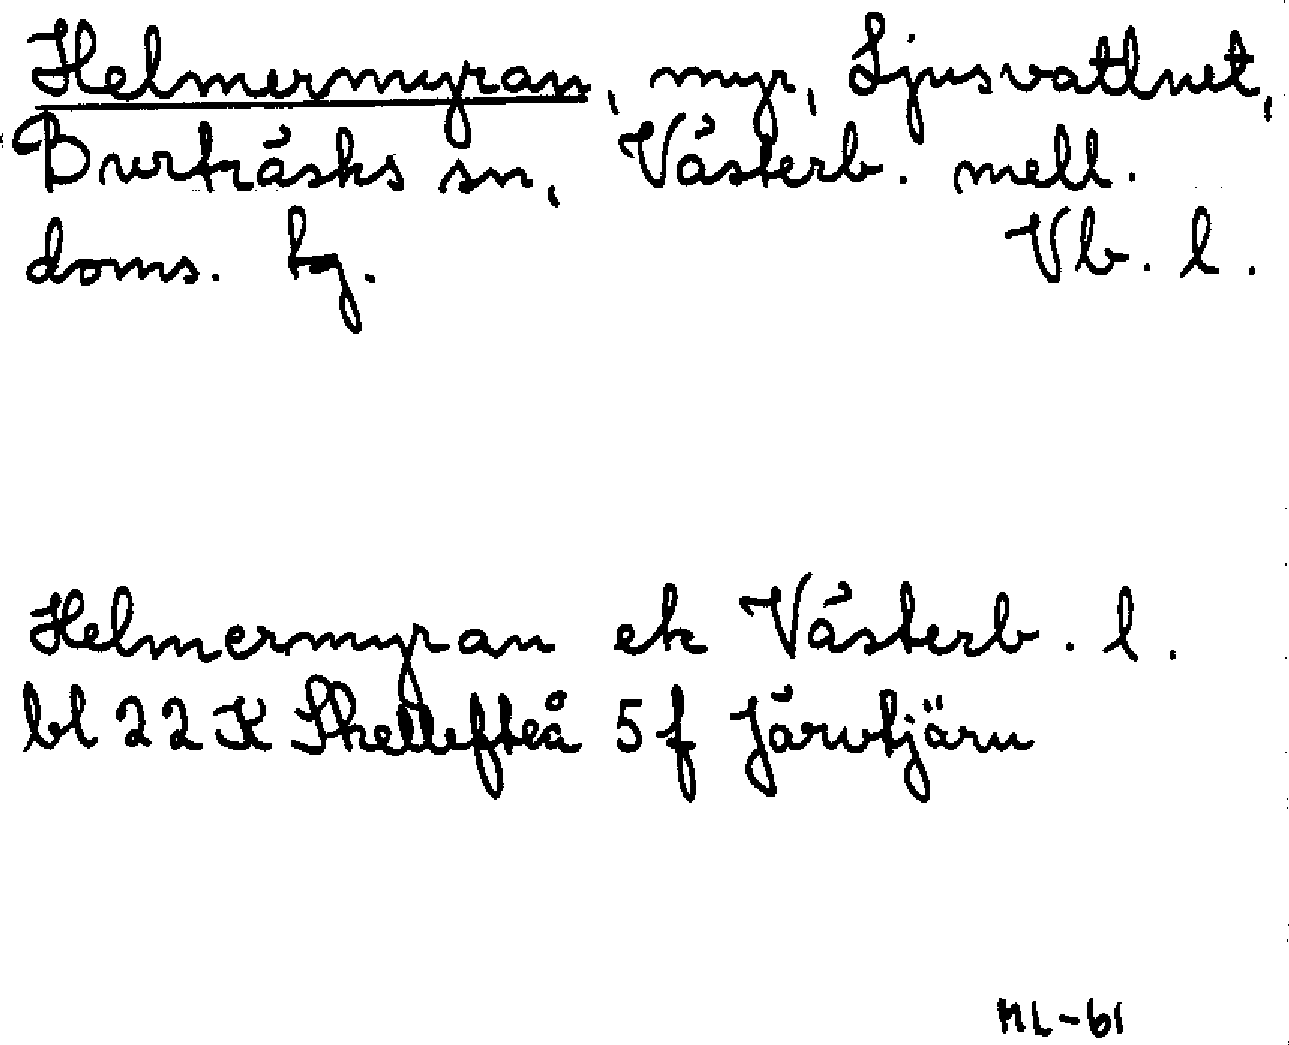 Helmermyran, myr, Ljusvattnet,
Burträsks sn, Västerb. mell.
doms. tg. Vb. l.
Helmermyran ek Västerb. l.
bl 22 K Skellefteå 5f Järvtjärn
ML-61